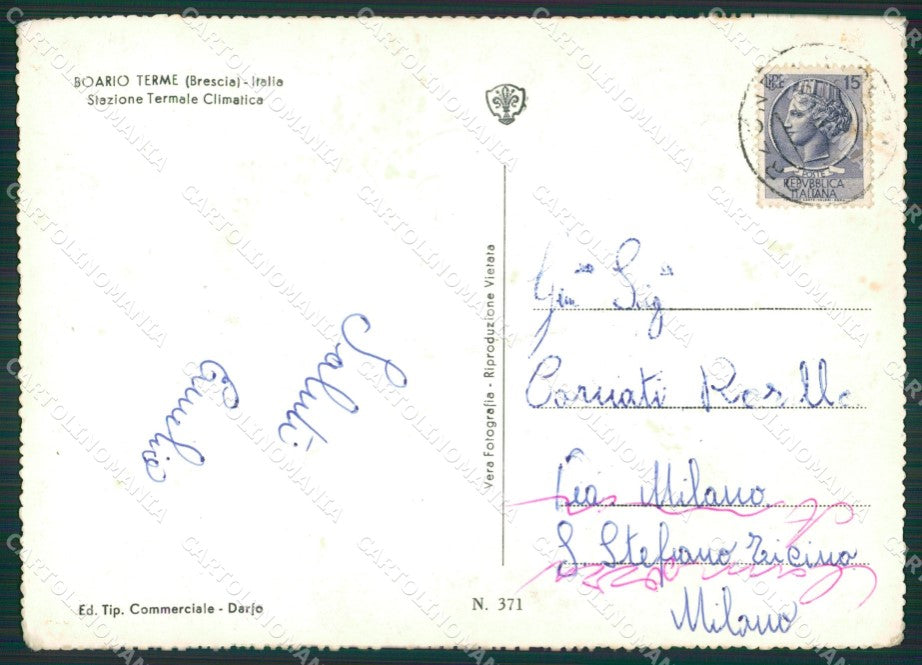 BOARIO TERME (Brescia) - Italia
Stazione Termale Climatica
Saluti
Emilio
Ed. Tip. Commerciale - Darfo
Vera Fotografia - Riproduzione Vietata
N. 371
15
POSTE
REPVBBLICA
ITALIANA
Sig
Via Milano
S. Stefano Ticino
Milano
CARTOLINOMANIA